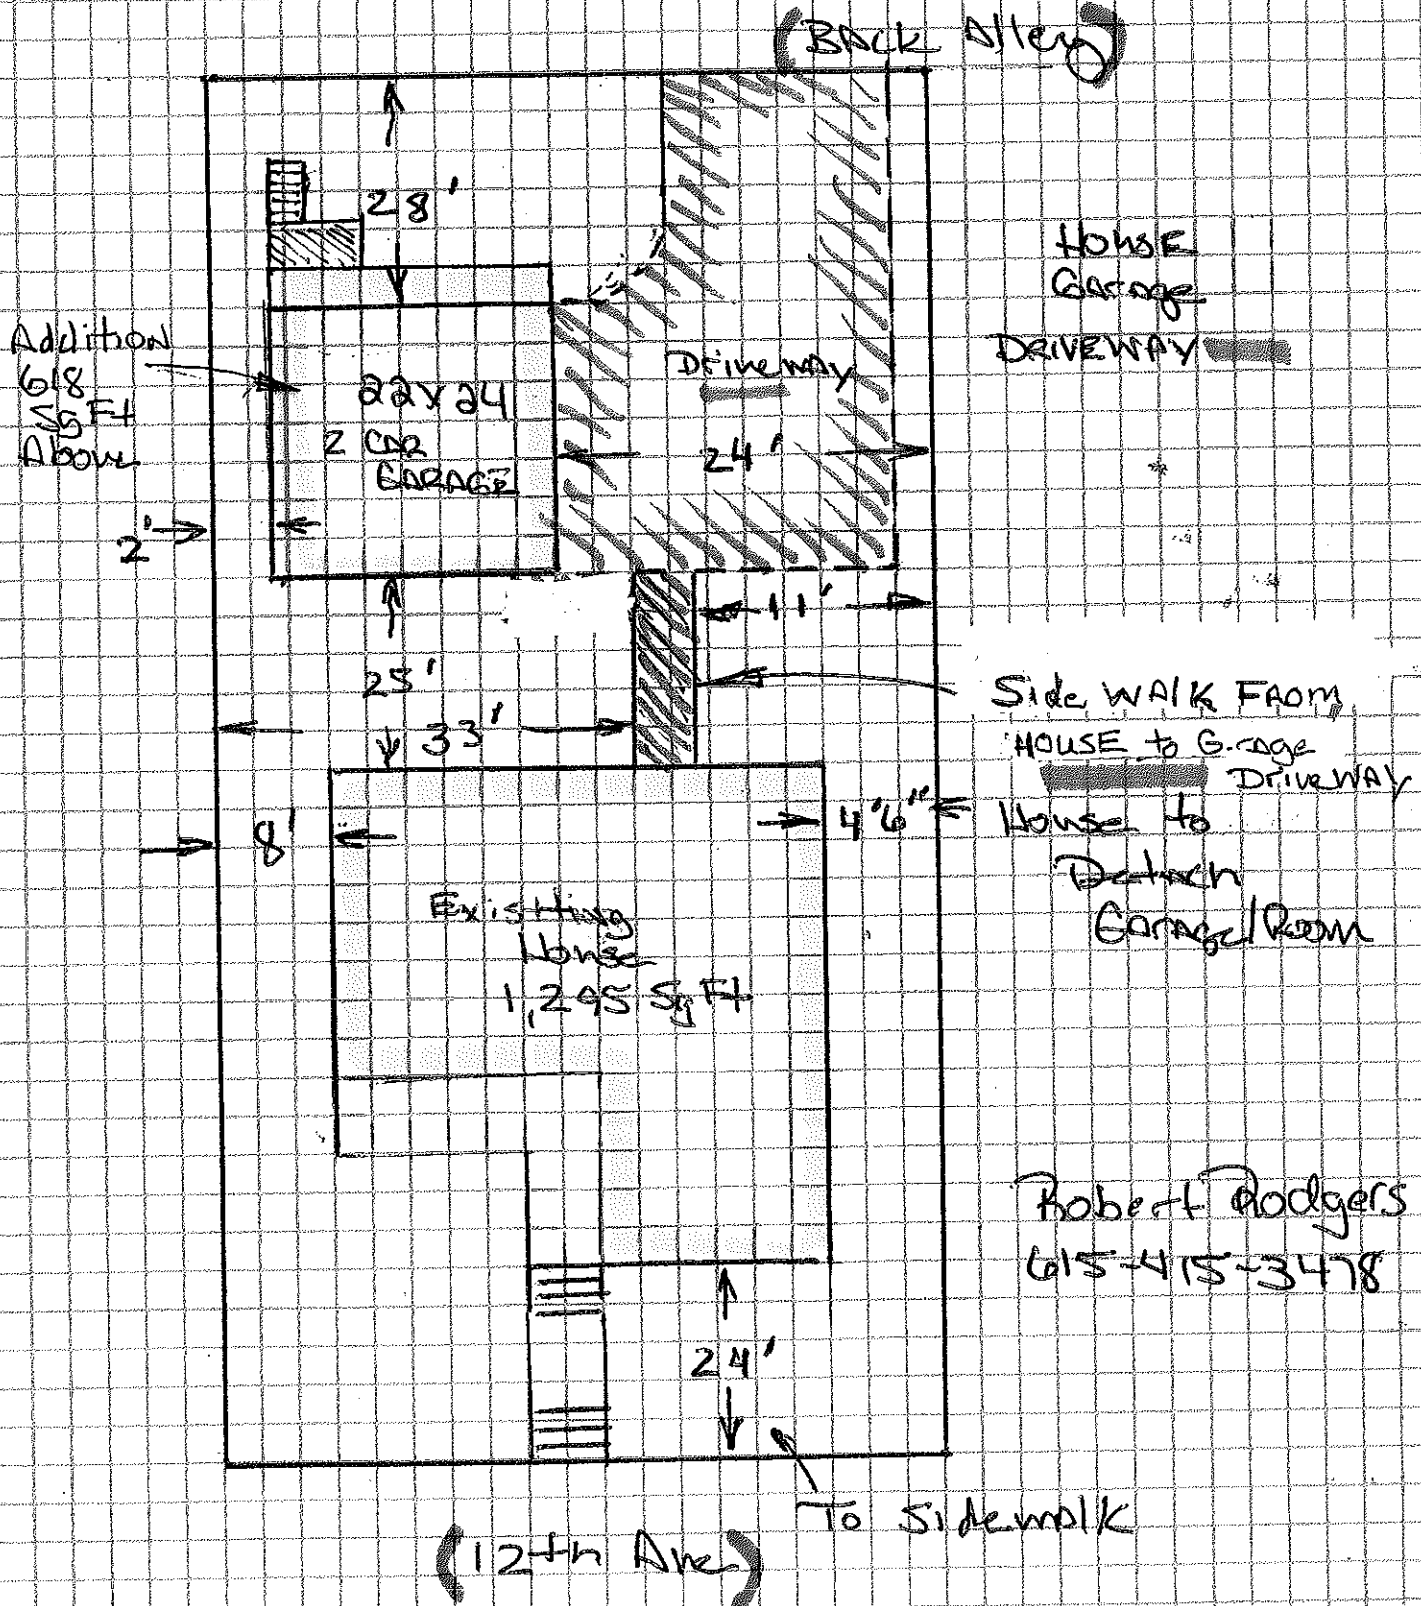 (BACK Alley)
28'
HOUSE
Garage
DRIVEWAY
Addition
618
Sq Ft
Above
22x24
2 CAR
GARAGE
Driveway
24'
2'
11'
25'
33'
Side WALK FROM
HOUSE to Garage
DriveWAY
8'
4'6"
House to
Detach
Garage/Room
Exisitting
House
1,295 Sq Ft
Robert Rodgers
615-415-3478
24'
To Sidewalk
(12th Ave)